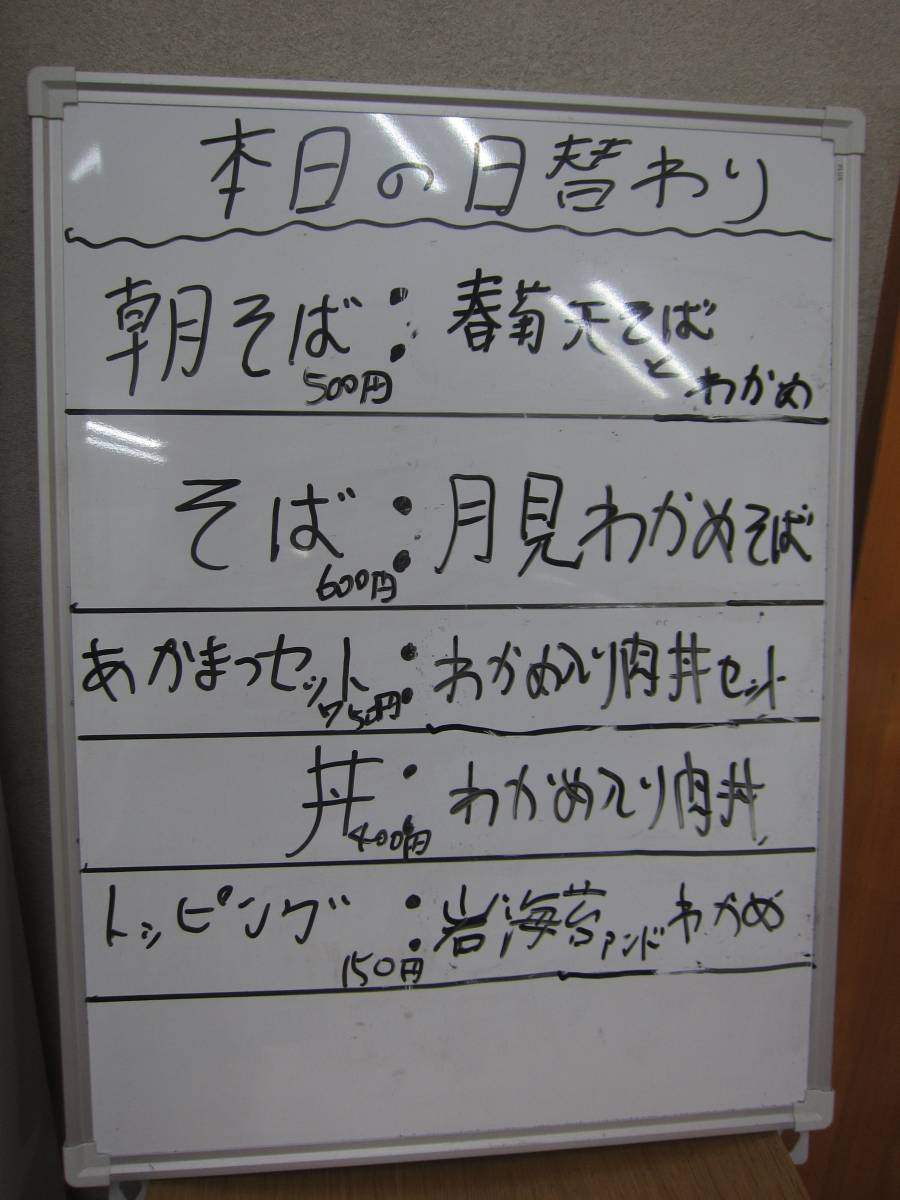 本日の日替わり
朝そば：春菊天そば
500円 とわかめ
そば：月見わかめそば
600円
あかまつセット：わかめ入り肉丼セット
750円
丼：わかめ入り肉丼
400円
トッピング：岩海苔アンドわかめ
150円